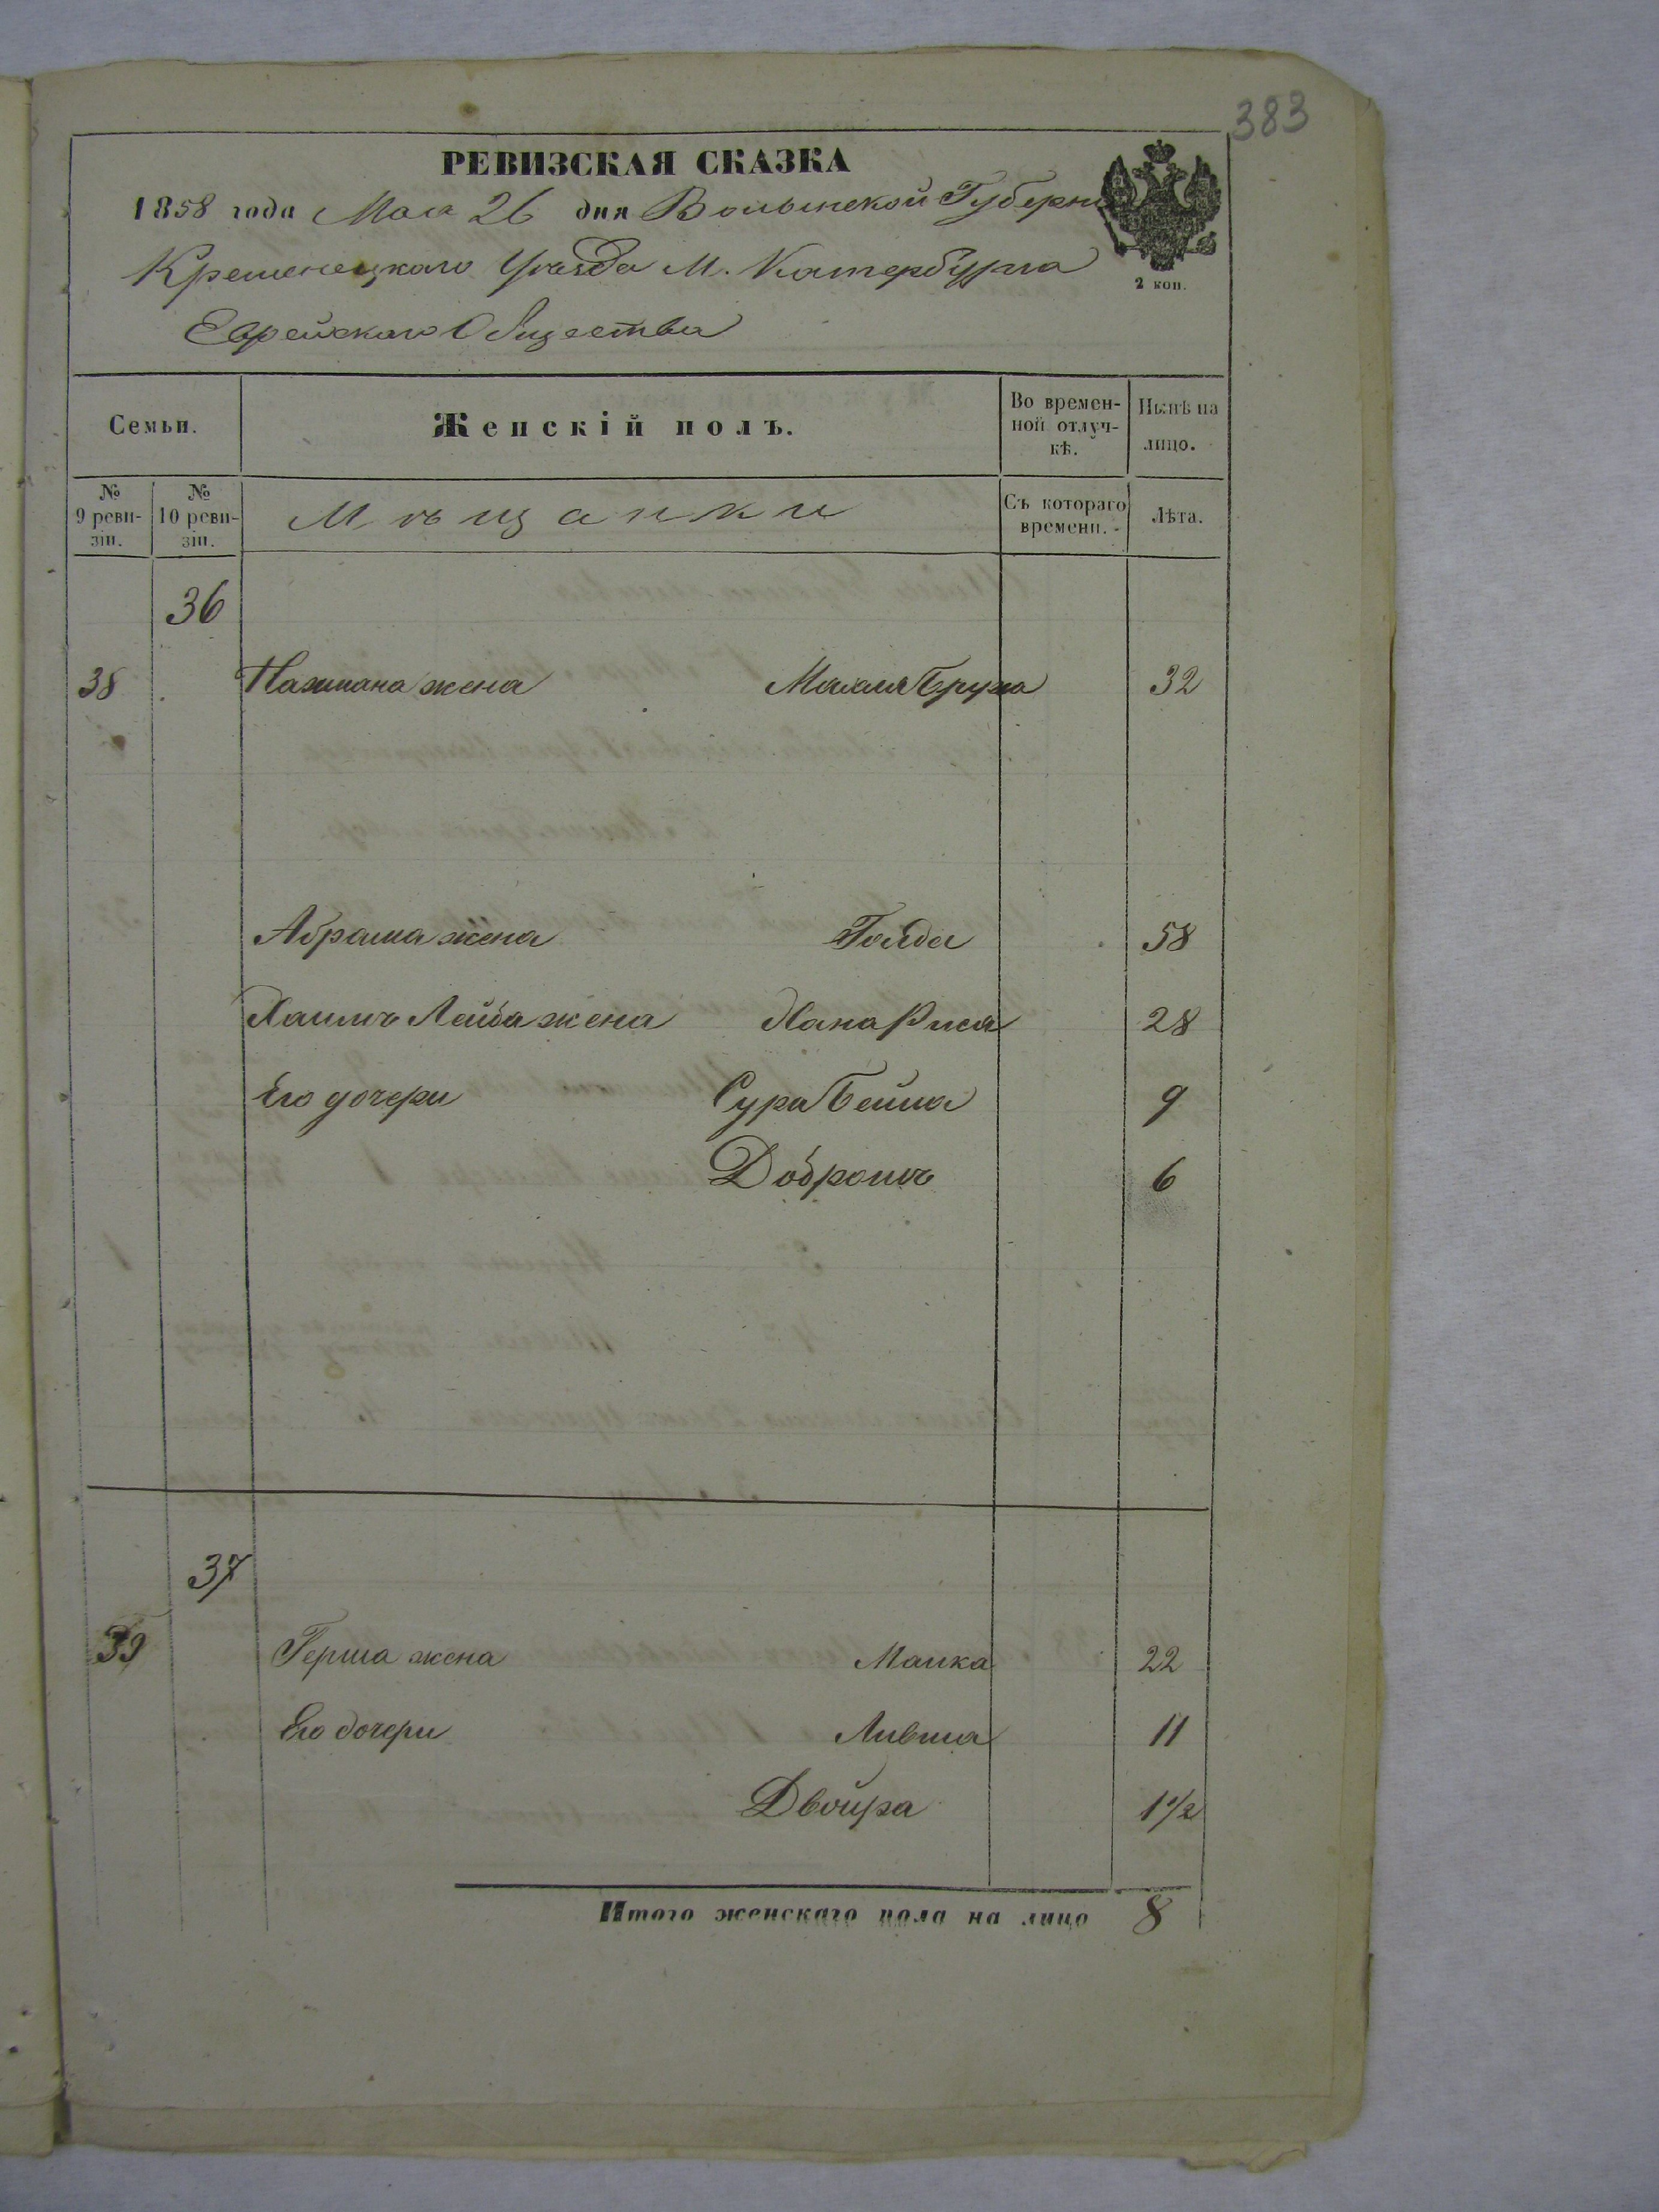 383
РЕВИЗСКАЯ СКАЗКА
1858 года Мая 26 дня Волынской Губерніи
Кременецкаго Уѣзда М. Катербурга
Еврейскаго Общества
2 коп.
Семьи. Женскій полъ. Во времен- ной отлуч- кѣ. Нынѣ на лицо.
№ 9 реви- зіи. № 10 реви- зіи. Мѣщанки Съ котораго времени. Лѣта.
36
38 Нахмана жена Малля Бруха 32
Абрама жена Голда 58
Хаимъ Лейба жена Хана Рися 28
Его дочери Сура Бейла 9
Добромъ 6
37
39 Герша жена Малка 22
Его дочери Ливша 11
Двойра 1 1/2
Итого женскаго пола на лицо 8